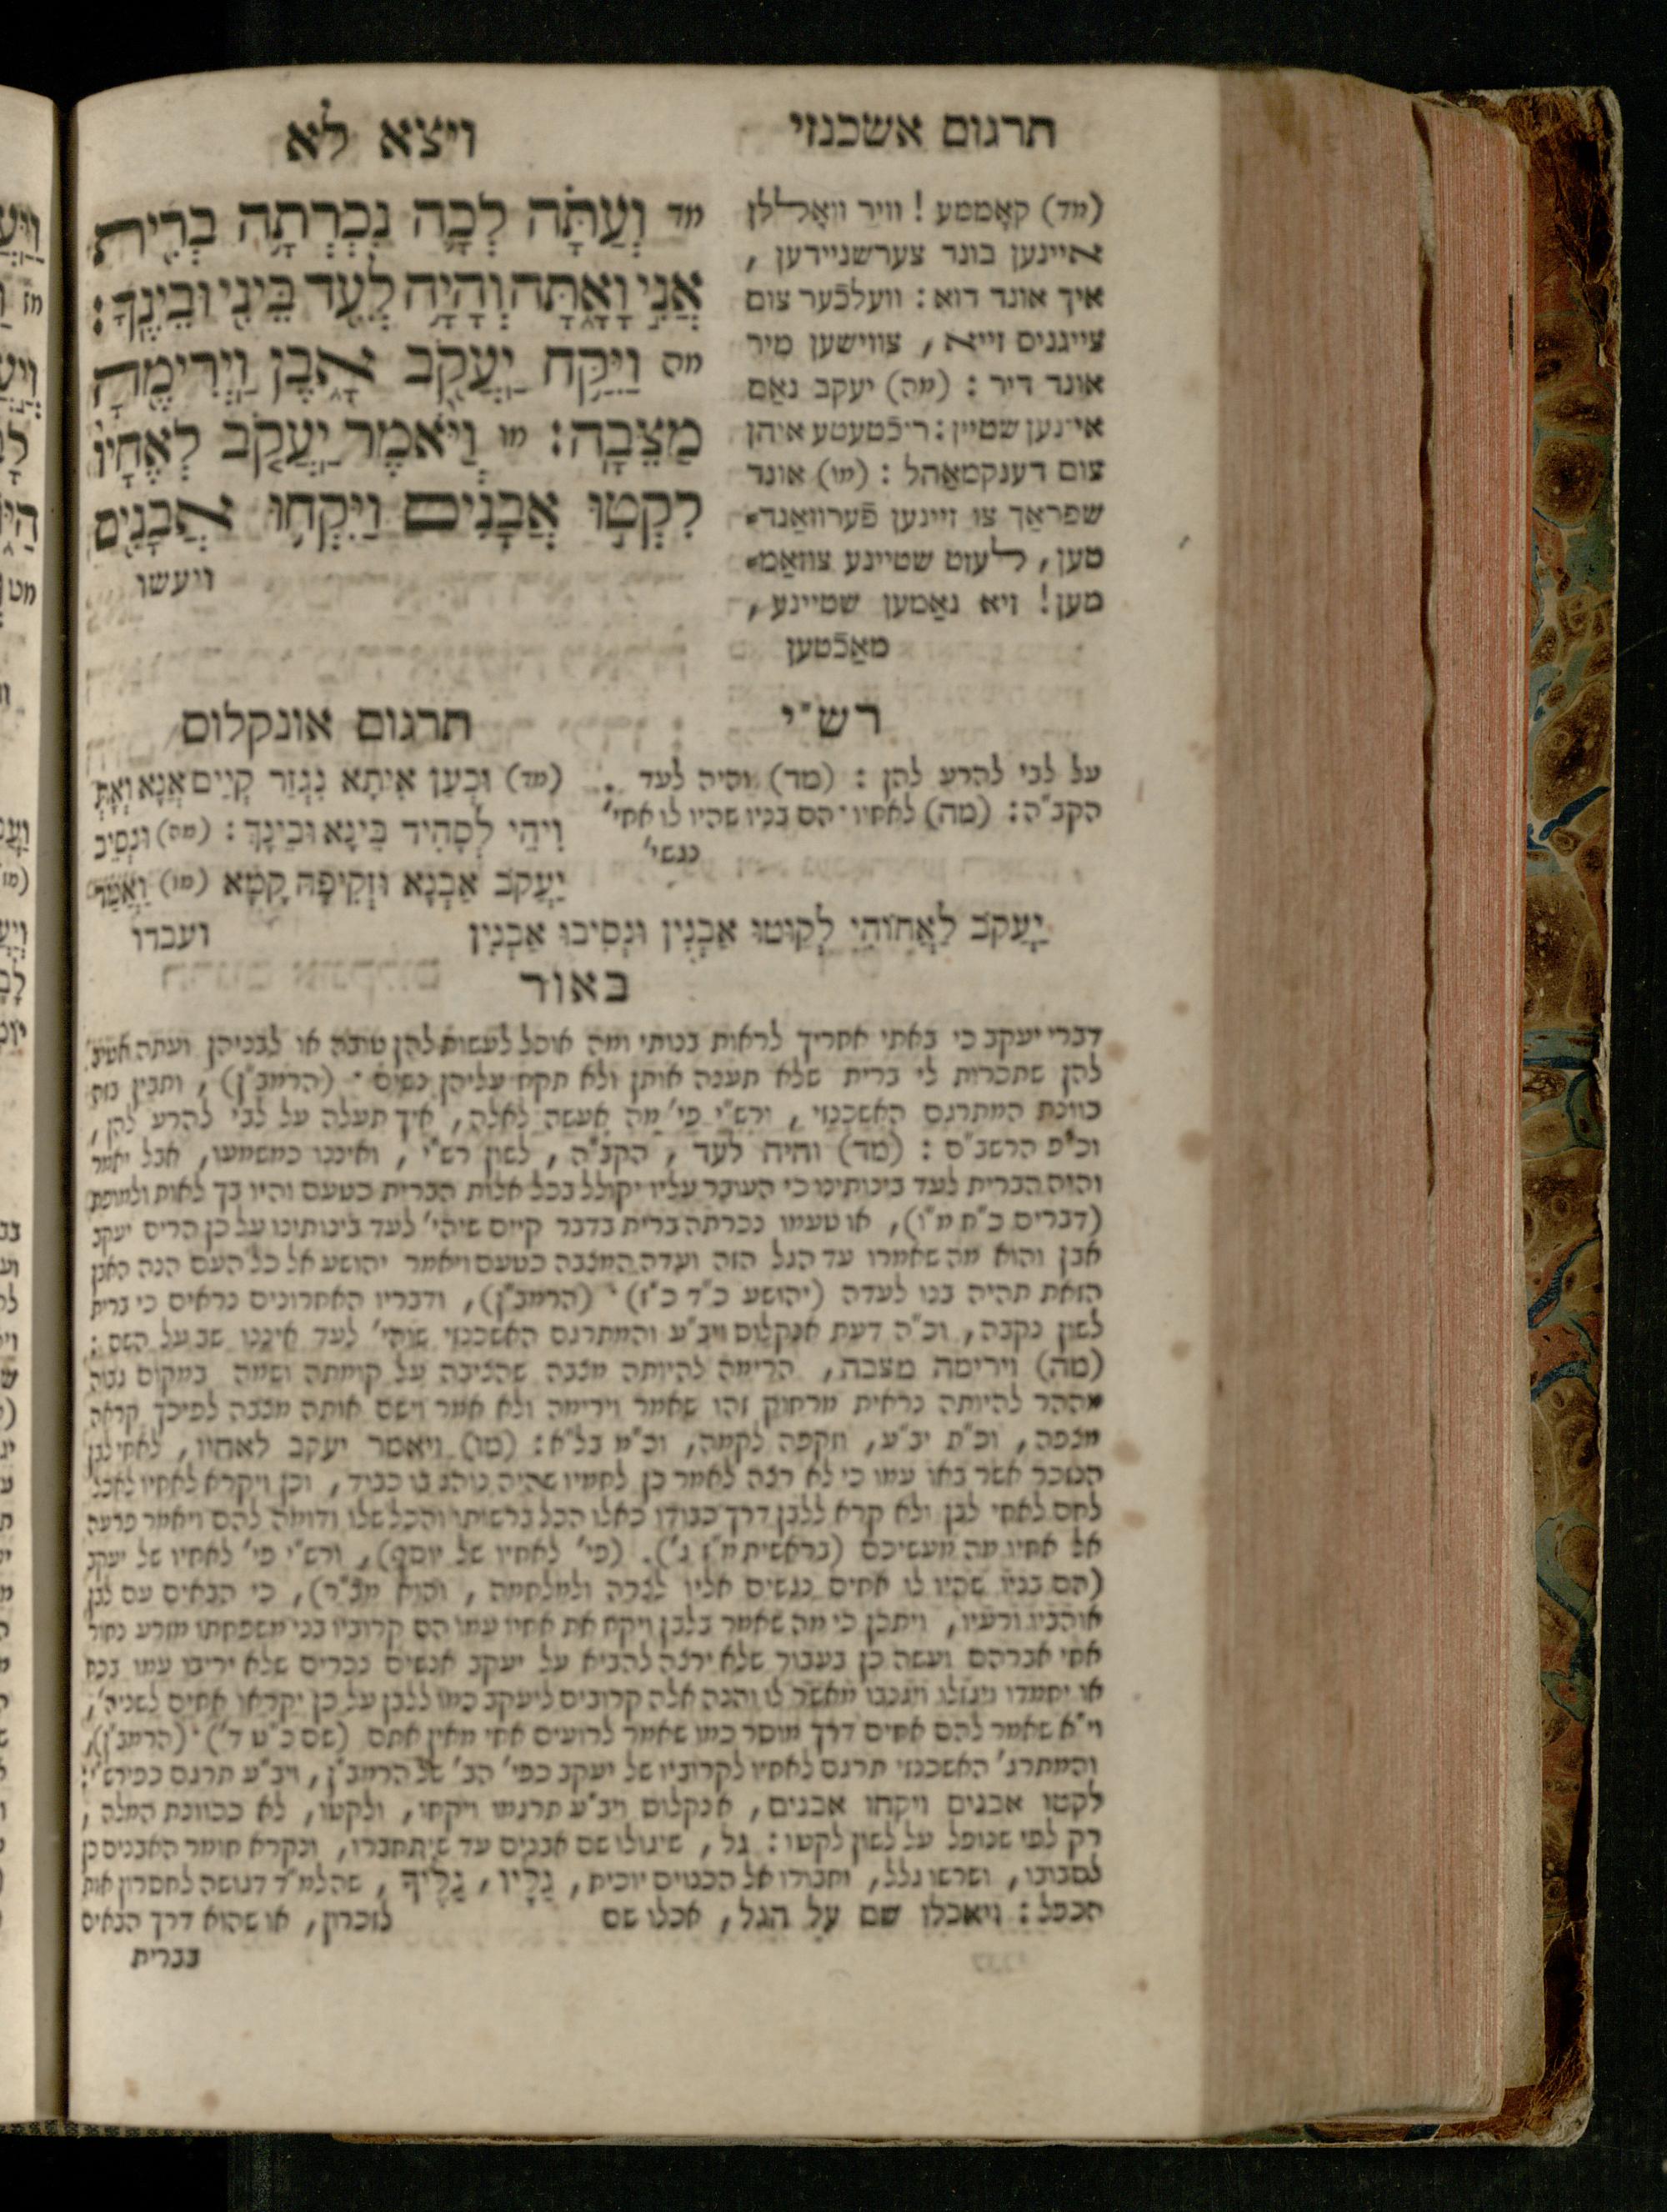 ויצא לא
תרגום אשכנזי
מד וְעַתָּ֗ה לְכָ֛ה נִכְרְתָ֥ה בְרִ֖ית
אֲנִ֣י וָאָ֑תָּה וְהָיָ֥ה לְעֵ֖ד בֵּינִ֥י וּבֵינֶֽךָ׃
מה וַיִּקַּ֥ח יַעֲקֹ֖ב אָ֑בֶן וַיְרִימֶ֖הָ
מַצֵּבָֽה׃ מו וַיֹּ֨אמֶר יַעֲקֹ֤ב לְאֶחָיו֙
לִקְט֣וּ אֲבָנִ֔ים וַיִּקְח֥וּ אֲבָנִ֖ים
ויעשו
(מד) קאָממע! וויר וואָללן
איינען בונד צערשניידען,
איך אונד דוא: וועלכֿער צום
צייגניס זייא, צווישען מיר
אונד דיר: (מה) יעקב נאַם
איינען שטיין: ריכֿטעטע איהן
צום דענקמאַהל: (מו) אונד
שפראַך צו זיינען פֿערוואַנד-
טען, לעזט שטיינע צוזאַמ-
מען! זיא נאַמען שטיינע,
מאַכֿטען
תרגום אונקלוס
(מד) וּכְעַן אִיתָא נִגְזַר קְיָם אֲנָא וְאַתְּ
וִיהֵי לְסָהִיד בֵּינָא וּבֵינָךְ: (מה) וּנְסֵיב
יַעֲקֹב אַבְנָא וּזְקֵיפָהּ קָמָא (מו) וַאֲמַר
יַעֲקֹב לַאֲחוֹהִי לְקוּטוּ אַבְנִין וּנְסִיבוּ אַבְנִין
ועברו
רש"י
על לבי להרע להן: (מד) והיה לעד.
הקב"ה: (מה) לאחיו. הם בניו שהיו לו אחי'
נגשי'
באור
דברי יעקב כי באתי אחריך לראות בנותי ומה אוכל לעשות להן טובה או לבניהן ועתה אטיב
להן שתכרות לי ברית שלא תענה אותן ולא תקח עליהן נשים. (הרמב"ן), ותבין מזה
כוונת המתרגם האשכנזי, ורש"י פי' מה אעשה לאלה, איך תעלה על לבי להרע להן,
וכ"פ הרשב"ם: (מד) והיה לעד, הקב"ה, לשון רש"י, ואיננו כמשמעו, אבל יאמר
והיה הברית לעד בינותינו כי העובר עליו יקולל בכל אלות הברית כטעם והיו בך לאות ולמופת
(דברים כ"ח מ"ו), או טעמו נכרתה ברית בדבר קיים שיהי' לעד בינותינו על כן הרים יעקב
אבן והוא מה שאמרו עד הגל הזה ועדה המצבה כטעם ויאמר יהושע אל כל העם הנה האבן
הזאת תהיה בנו לעדה (יהושע כ"ד כ"ז). (הרמב"ן), ודבריו האחרונים נראים כי ברית
לשון נקבה, וכ"ה דעת אנקלוס ויב"ע והמתרגם האשכנזי שוהי' לעד איננו שב על השם:
(מה) וירימה מצבה, הרימה להיותה מצבה שהציבה על קומתה ושמה במקום גבוה
מההר להיותה נראית מרחוק וזהו שאמר וירימה ולא אמר וישם אותה מצבה לפיכך קראה
מצפה, וכ"ת יב"ע, וזקפה לקמה, וכ"מ בל"א: (מו) ויאמר יעקב לאחיו, לאחי לבן
הנזכר אשר באו עמו כי לא רצה לאמר כן לחמיו שהיה נוהג בו כבוד, וכן ויקרא לאחיו לאכל
לחם לאחי לבן ולא קרא ללבן דרך כבודו כאלו הכל ברשותו והכל שלו ודומה להם ויאמר פרעה
אל אחיו מה מעשיכם (בראשית מ"ז ג'). (פי' לאחיו של יוסף), ורש"י פי' לאחיו של יעקב
(הם בניו שהיו לו אחים נגשים אליו לצרה ולמלחמה, והוא מב"ר), כי הבאים עם לבן
אוהביו ורעיו, ויתכן כי מה שאמר בלבן ויקח את אחיו עמו הם קרוביו בני משפחתו מזרע נחור
אחי אברהם ועשה כן בעבור שלא ירצה להביא על יעקב אנשים נכרים שלא יריבו עמו בכח
או יחמדו ויגזלו ויגנבו מאשר לו והנה אלה קרובים ליעקב כמו ללבן על כן יקראו אחים לשניה',
וי"א שאמר להם אחים דרך מוסר כמו שאמר לרועים אחי מאין אתם (שם כ"ט ד'). (הרמב"ן),
והמתרג' האשכנזי תרגם לאחיו לקרוביו של יעקב כפי' הב' של הרמב"ן, ויב"ע תרגם כפירש"י:
לקטו אבנים ויקחו אבנים, אנקלוס ויב"ע תרגמו ויקחו, ולקטו, לא ככוונת המלה,
רק לפי שנופל על לשון לקטו: גל, שיגולו שם אבנים עד שיתחברו, ונקרא חומר האבנים כן
לסבובו, ושרשו גלל, וחבורו אל הכנויים יוכיח, גַלָיו, גַלֶיךָ, שהלמ"ד דגושה לחסרון אות
הכפל: ויאכלו שם על הגל, אכלו שם לזכרון, או שהוא דרך הבאים
בברית